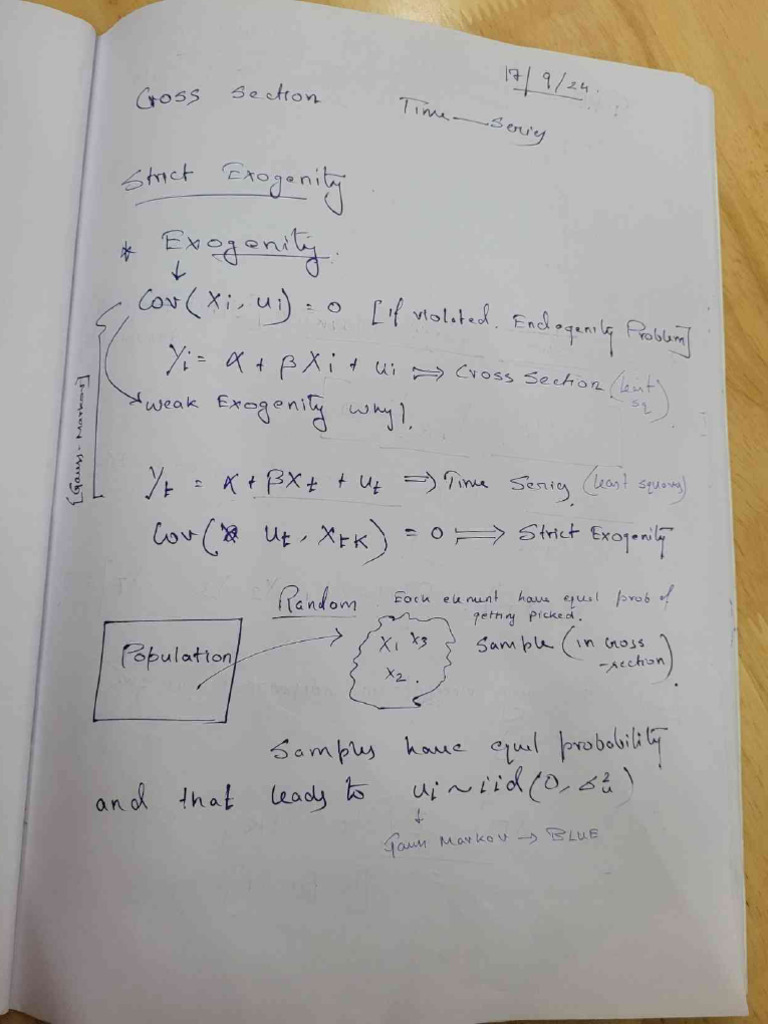 17/9/24.
Cross Section Time - Series
Strict Exogenity
* Exogenity.
↓
Cov(Xi, ui) = 0 [if violated. Endogenity Problem]
Yi = α + βXi + ui ⇒ Cross Section (least sq).
weak Exogenity why?.
[Gauss-Markov]
Yt = α + βXt + ut ⇒ Time Series. (least squares)
Cov( ut, Xtk) = 0 ⇒ Strict Exogenity
Random Each element have equal prob of
getting picked.
Population X1 X3 Sample (in cross
X2 . -section).
Samples have equal probability
and that leads to ui ~ iid(0, σ²u)
↓
Gauss Markov → BLUE